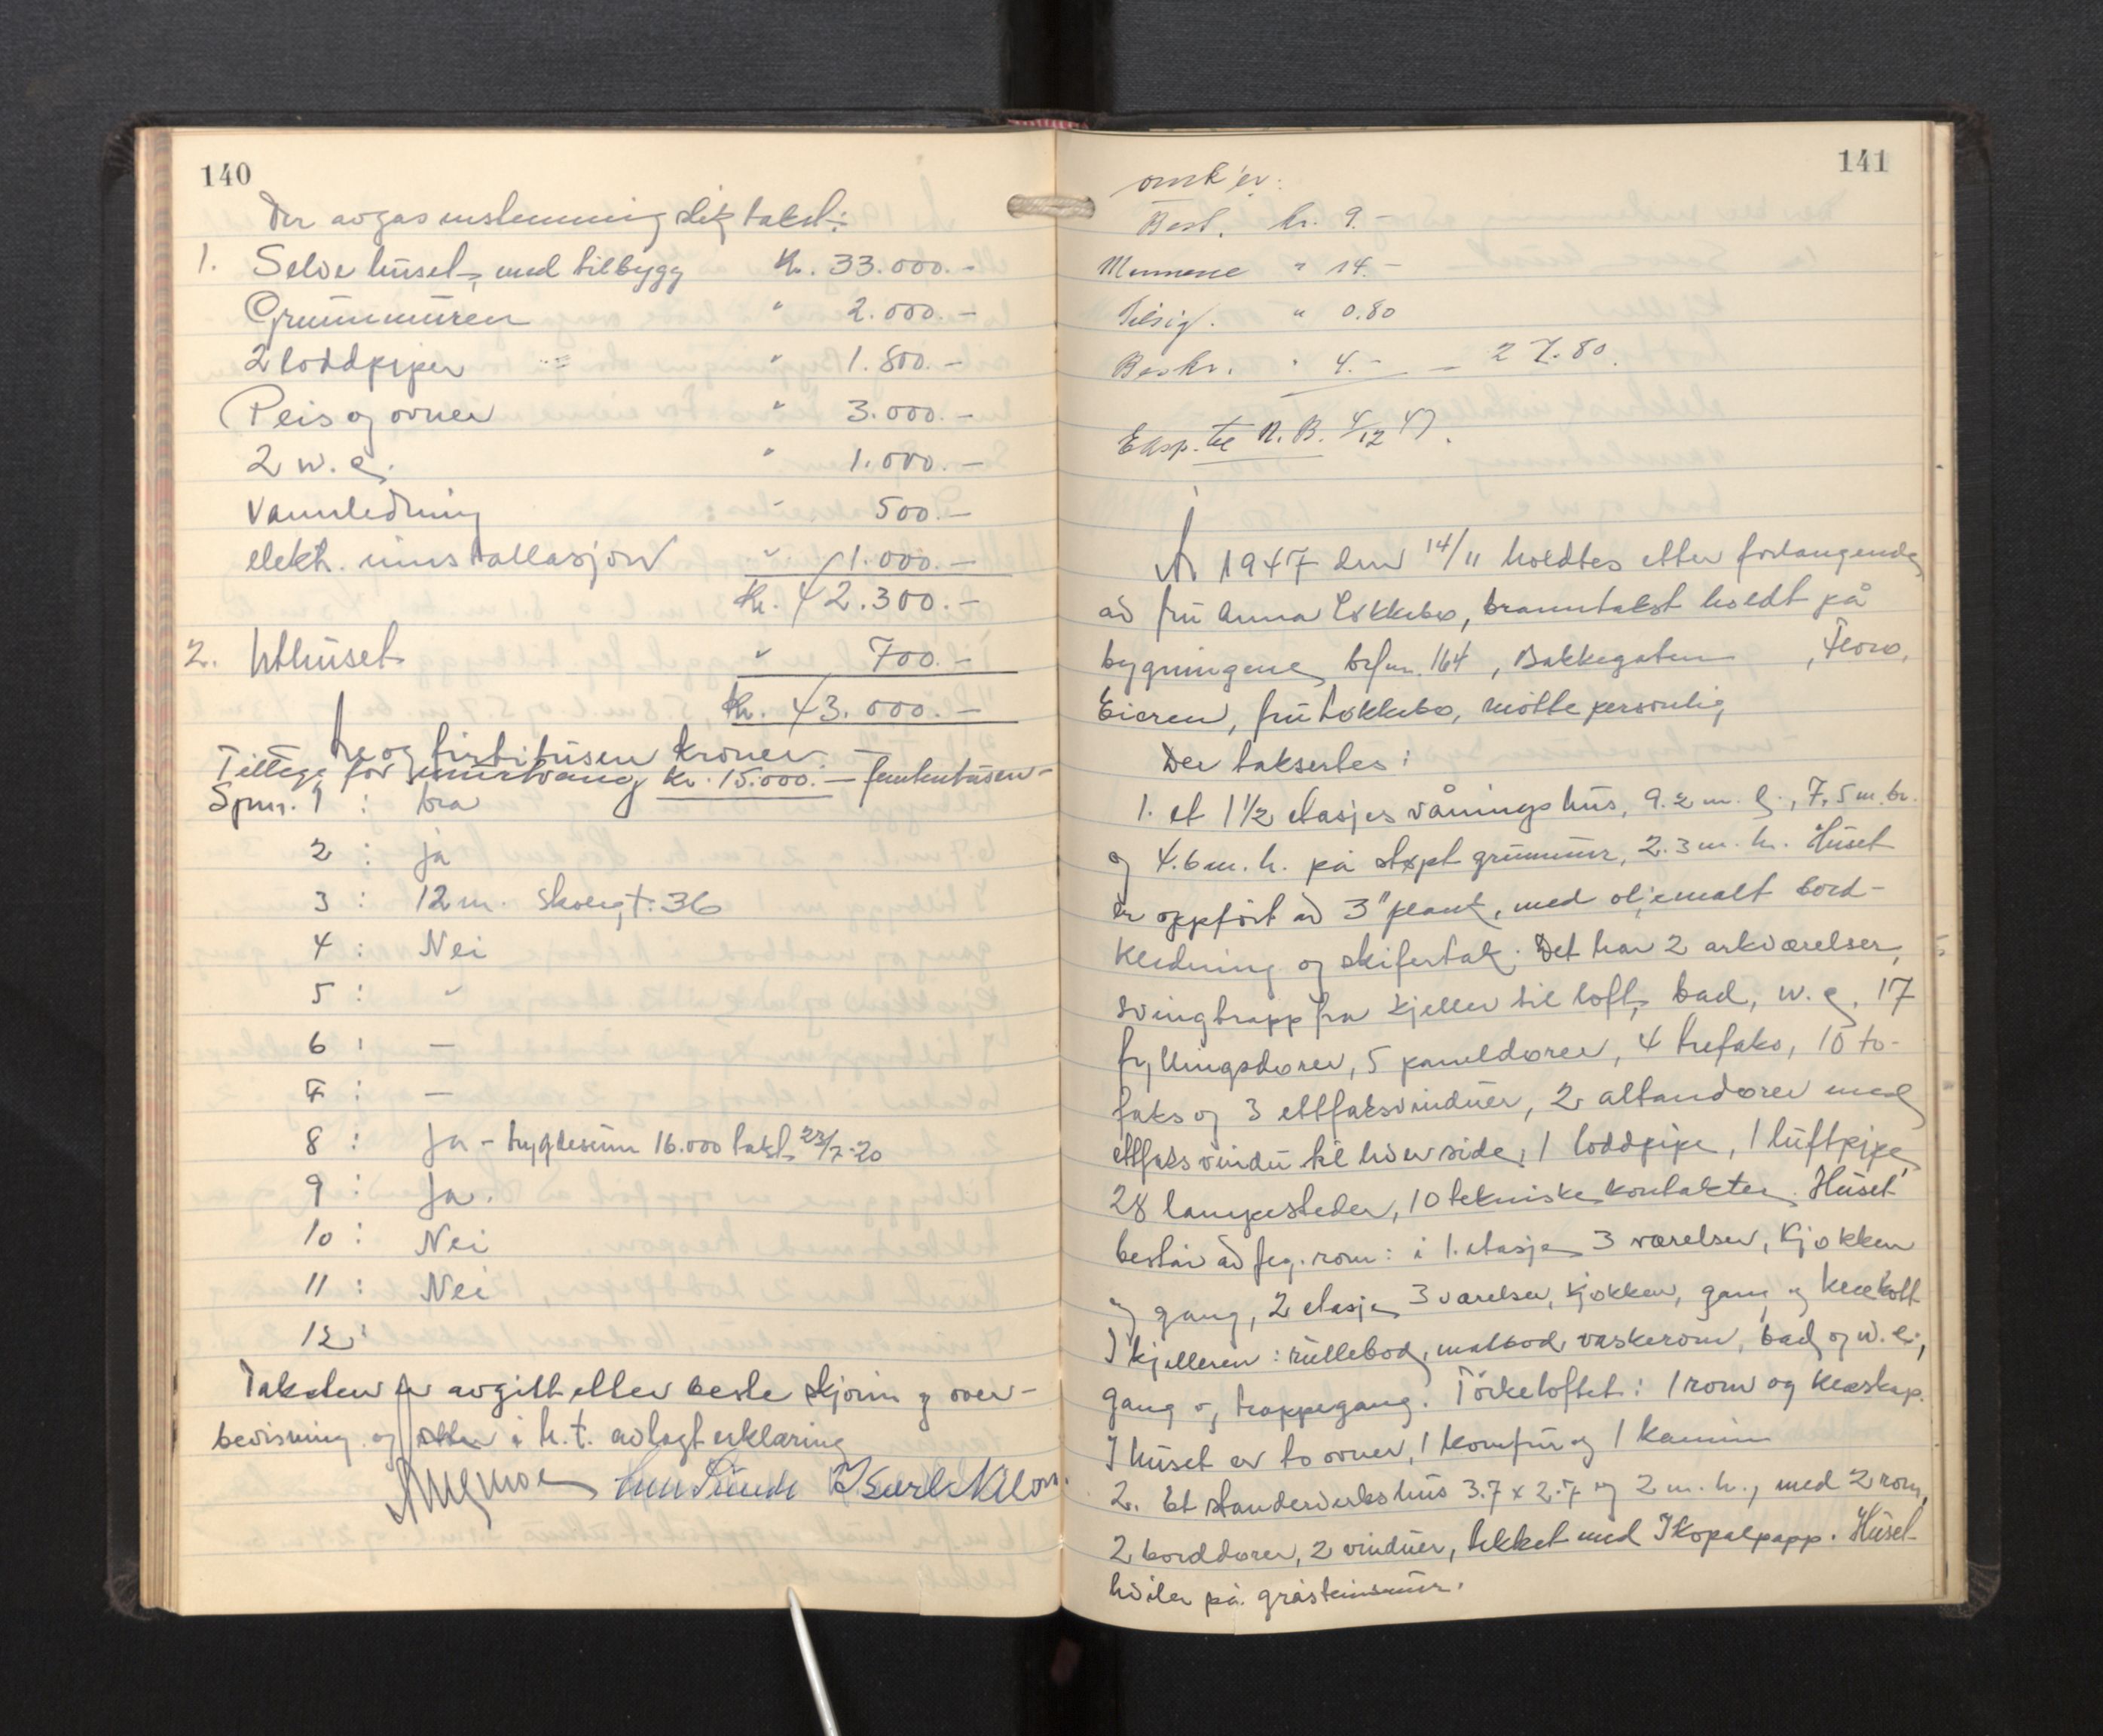 140
Der avgas enstemmig slik takst:
1. Selve huset, med tilbygg Kr. 33.000.-
Grunnmuren " 2.000.-
2 loddpiper " 1.800.-
Peis og ovner " 3.000.-
2 w.c. " 1.000.-
Vannledning - 500.-
elektr. innstallasjon " 1.000.-
Kr. 42.300.-
2. Uthuset " 700.-
Kr. 43.000.-
tre og firtitusen kroner.
Tillegg for murtvang kr. 15.000.- femtentusen-
Spm. 1 : bra
2 : ja
3 : 12 m. 36
4 : Nei
5 : "
6 : —
7 : —
8 : Ja - bygdesum 16.000 takst 23/7-20
9 : Ja.
10 : Nei
11 : Nei
12 :
Taksten er avgitt etter beste skjønn og over-
bevisning og i h.t. avlagt erklæring
141
omk'er:
Best. kr. 9.-
Mennene " 14.-
Tilsig. " 0.80
Beskr. " 4.- - 27.80.
Eksp. til N.B. 4/12 47.
År 1947 den 14/11 holdtes etter forlangende
av fru Anna Løkkebø, branntakst holdt på
bygningene brfnr. 164, Bakkegaten, Florø.
Eieren, fru Løkkebø, møtte personlig
Der taksertes:
1. et 1½ etasjes våningshus, 9.2 m. l., 7.5 m. br.
og 4.6 m. h. på støpt grunnmur, 2.3 m. h. Huset
er oppført av 3" plank, med oljemalt bord-
kledning og skifertak. Det har 2 arkværelser,
svingtrapp fra kjeller til loft, bad, w.c. 17
fyllingsdører, 5 paneldører, 4 trefaks, 10 to-
faks og 3 ettfaksvinduer, 2 altandører med
ettfaksvindu til hver side, 1 loddpipe, 1 luftpipe,
28 lampesteder, 10 tekniske kontakter. Huset
består av føg. rom: i 1. etasje 3 værelser, kjøkken
og gang, 2 etasje 3 værelser, kjøkken, gang og klekott
I kjelleren: rullebod, matbod, vaskerom, bad og w.c.,
gang og trappegang. Tørkeloftet: 1 rom og kleskap.
I huset er to ovner, 1 komfur og 1 kamin
2. Et standerverkshus 3.7 x 2.7 og 2 m. h., med 2 rom,
2 borddører, 2 vinduer, tekket med Ikopalpapp. Huset
hviler på gråsteinsmur.